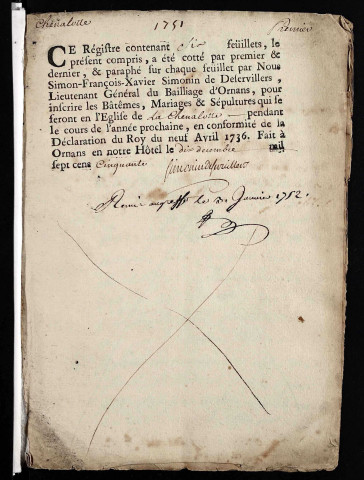 Chenalotte
1751
Premier
CE Régistre contenant Six feüillets, le
présent compris, a été cotté par premier &
dernier, & paraphé sur chaque feuillet par Nous
Simon-François-Xavier Simonin de Deservillers,
Lieutenant Général du Bailliage d'Ornans, pour
inscrire les Bâtêmes, Mariages & Sépultures qui se
feront en l'Eglise de La Chenalotte pendant
le cours de l'année prochaine, en conformité de la
Déclaration du Roy du neuf Avril 1736. Fait à
Ornans en notre Hôtel le dix decembre mil
sept cens Cinquante
Simonin Deservillers
Remis au greffe le Janvier 1752.